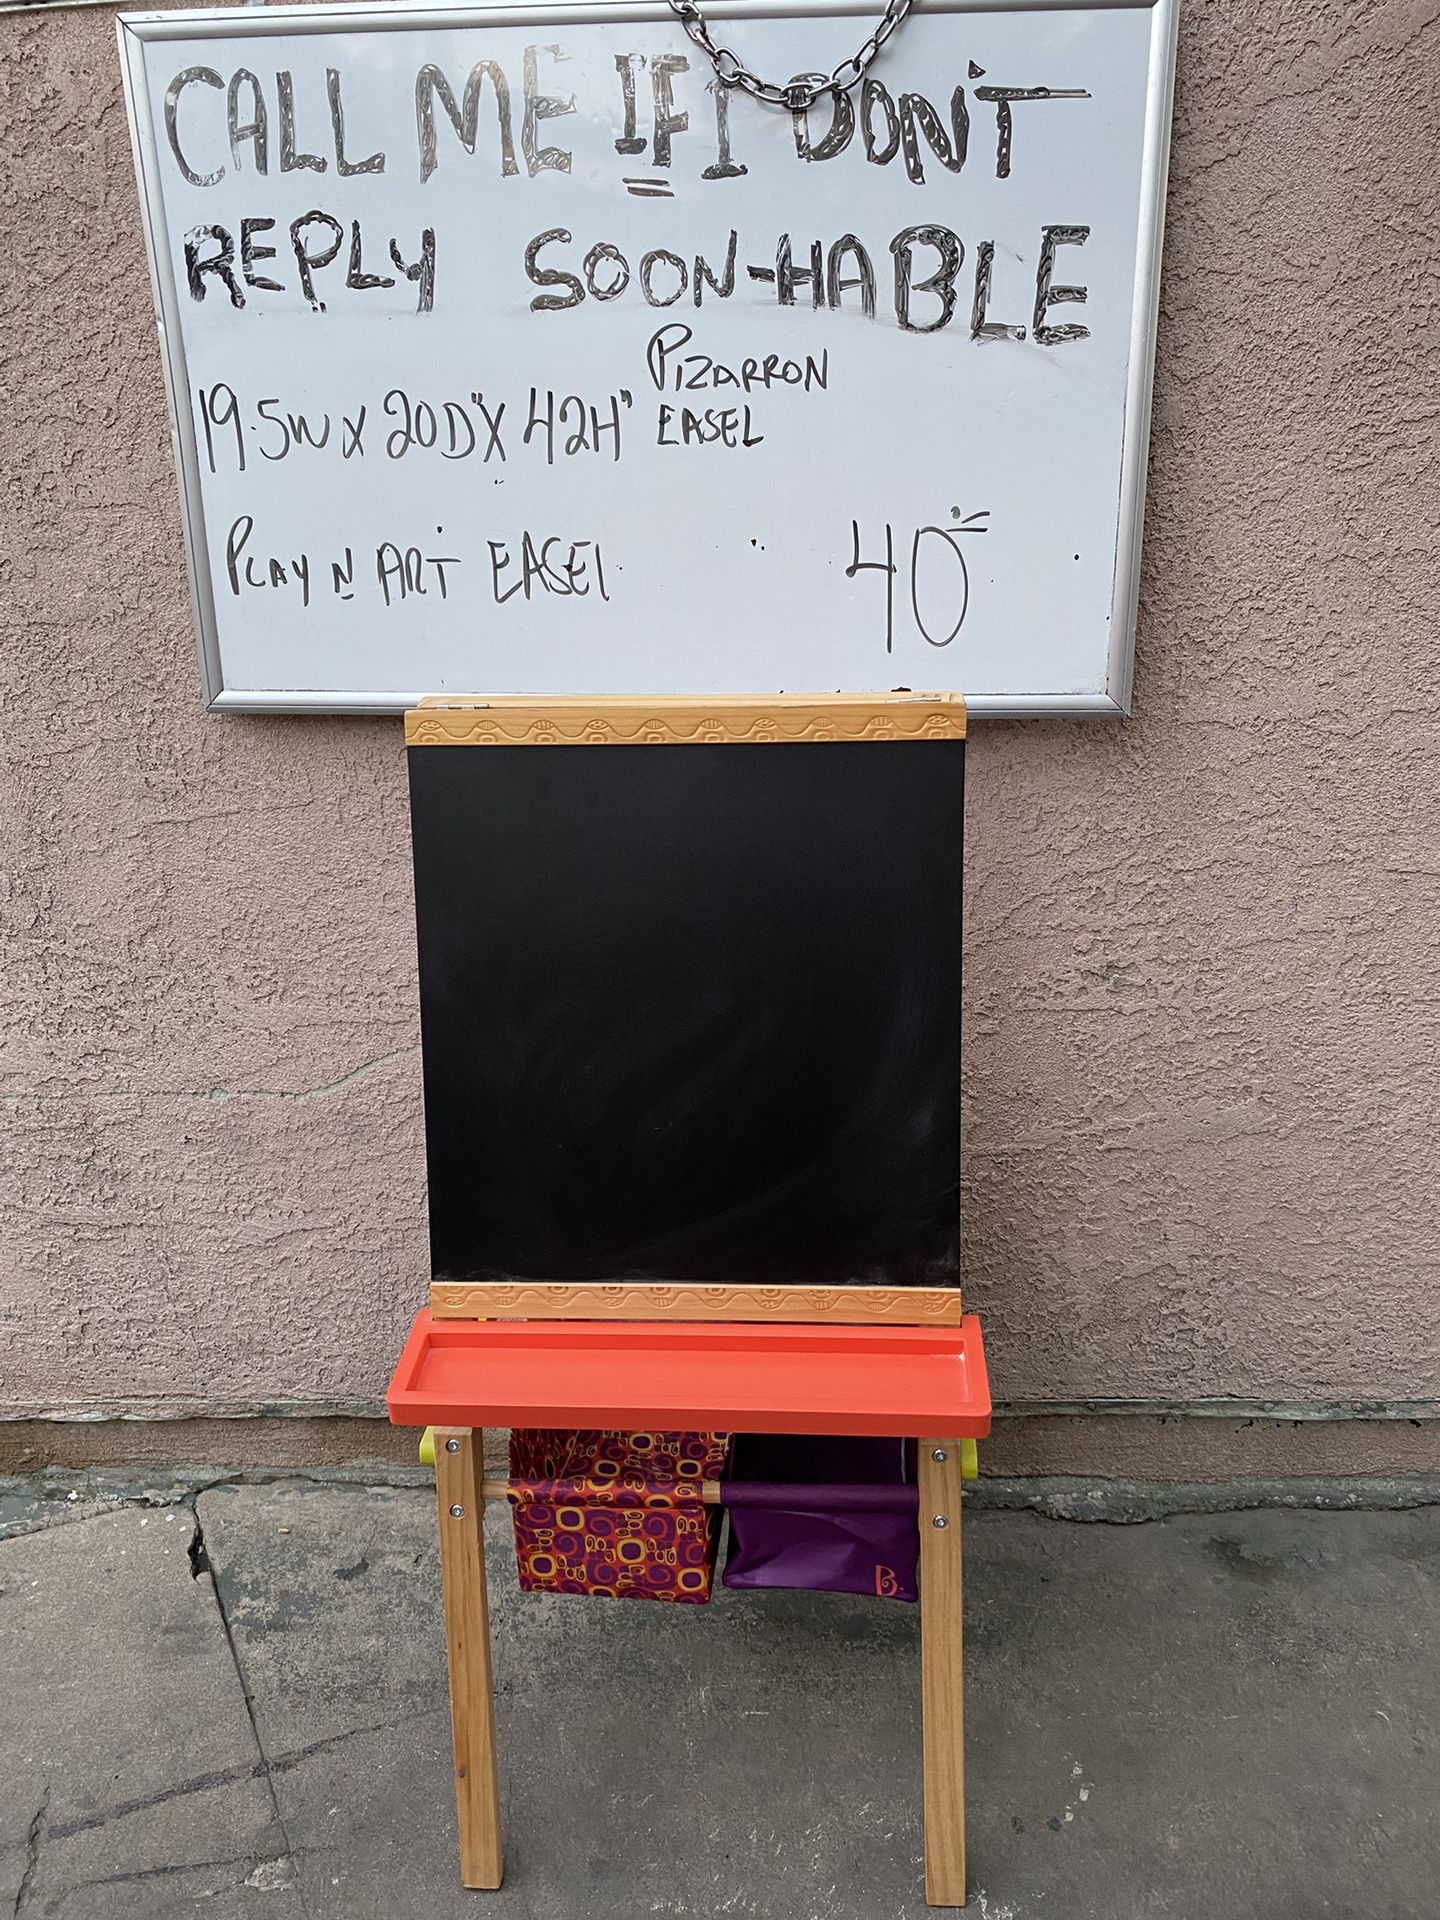 CALL ME IF I DON'T
REPLY SOON-HABLE
PIZARRON
19.5W X 20D" X 42H" EASEL
PLAY N ART EASEL 40=
B.